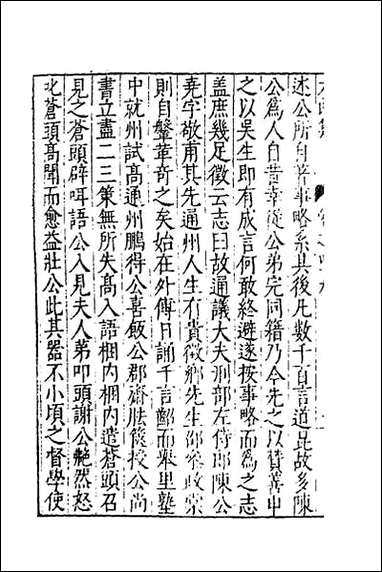 述公所自著事略系其後凡數千百言道昆故多陳
公爲人自昔幸從公弟完同籍乃今先之以贊善申
之以吳生即有成言何敢終避遂按事略而爲之志
蓋庶幾足徵云志曰故通議大夫刑部左侍郎陳公
堯字敬甫其先通州人生有貴徵鄉先生邵參政棠
則自鼇革奇之矣始在外傅日誦千言鄰而舉里塾
中就州試高通州鵬得公喜飯公郡齋胠篋授公尚
書立盡二三策無所失高入語梱內梱內遣蒼頭召
見之蒼頭辟咡語公入見夫人弟叩頭謝公艴然怒
叱蒼頭高聞而愈益壯公此其器不小頃之督學使